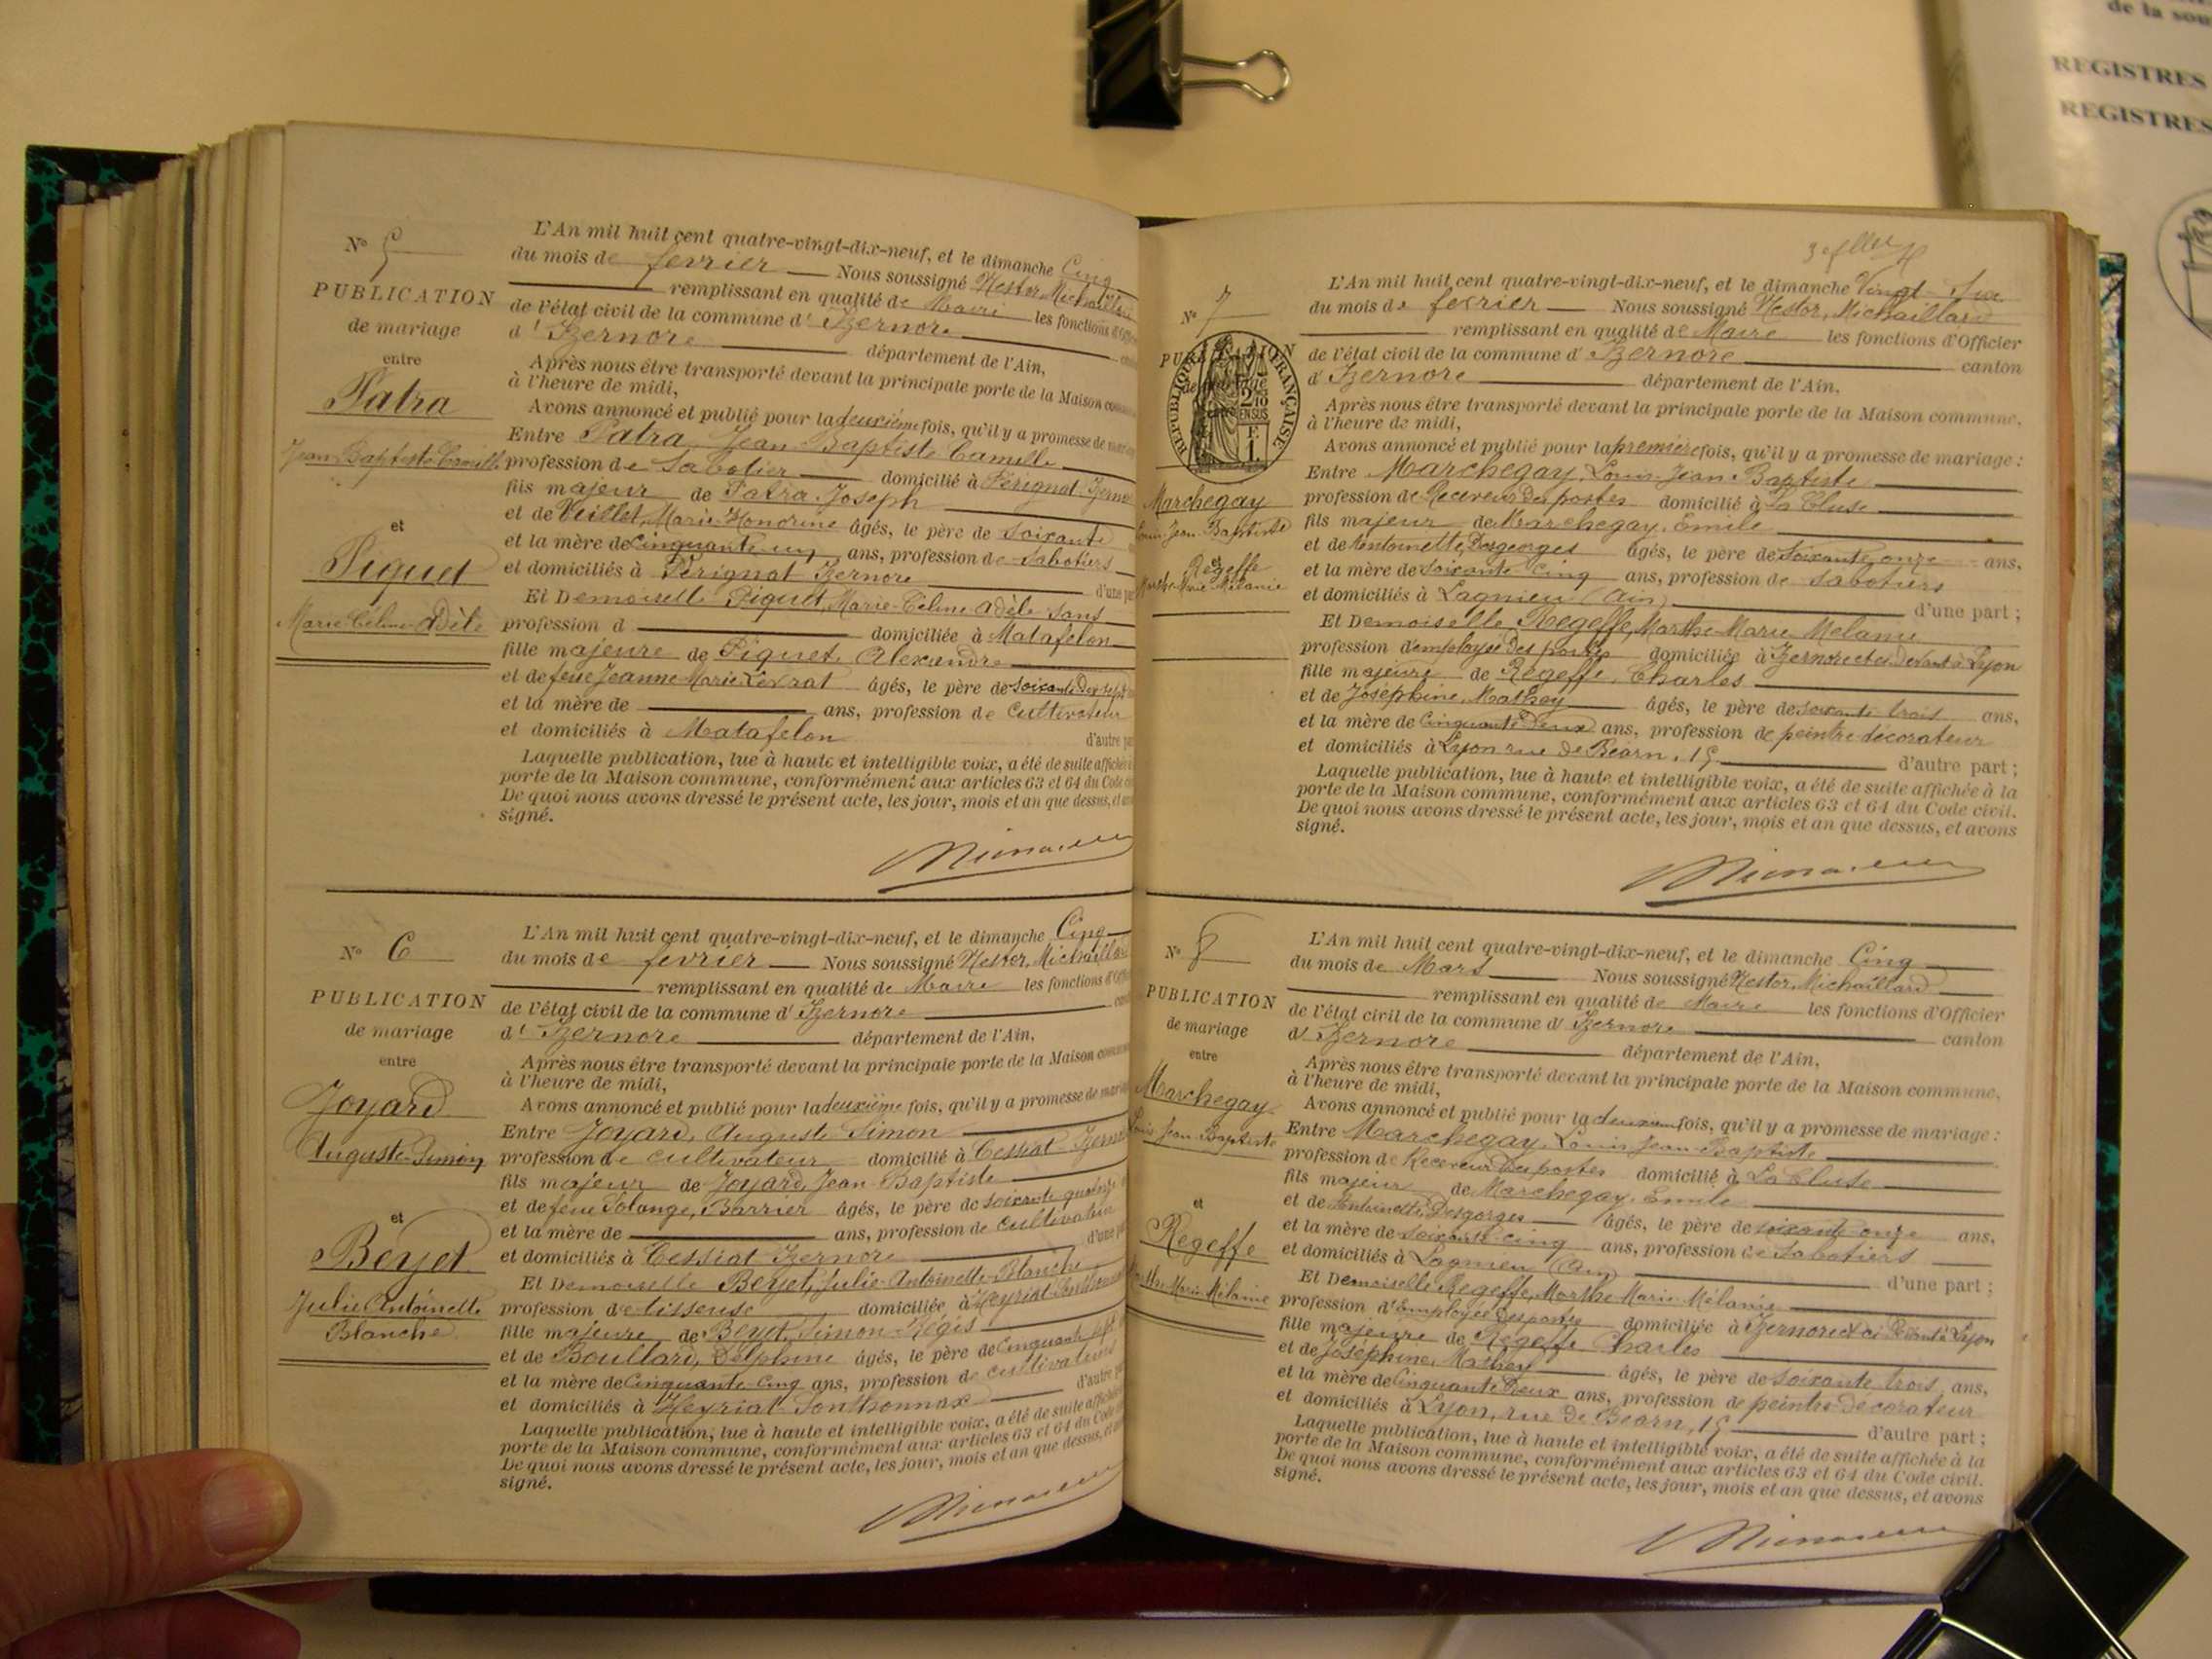 de la sou
REGISTRES
REGISTRES
N° 5
PUBLICATION
de mariage
entre
Patra
Jean Baptiste Camille
et
Piquet
Marie Céline Adèle
L'An mil huit cent quatre-vingt-dix-neuf, et le dimanche Cinq
du mois de fevrier Nous soussigné Nestor, Michaillard
remplissant en qualité de Maire les fonctions d'Offi
de l'état civil de la commune d' Izernore
d' Izernore département de l'Ain,
Après nous être transporté devant la principale porte de la Maison comm
à l'heure de midi,
Avons annoncé et publié pour la deuxième fois, qu'il y a promesse de mar
Entre Patra, Jean Baptiste Camille
profession de Sabotier domicilié à Pérignat Izerno
fils majeur de Patra Joseph
et de Veillet, Marie Honorine âgés, le père de soixante
et la mère de cinquante un ans, profession de Sabotiers
et domiciliés à Pérignat Izernore d'une pa
Et Demoiselle Piquet, Marie-Céline Adèle sans
profession d domiciliée à Matafelon
fille majeure de Piquet, Alexandre
et de feue Jeanne Marie âgés, le père de soixante dix sept
et la mère de ans, profession de Cultivateur
et domiciliés à Matafelon d'autre pa
Laquelle publication, lue à haute et intelligible voix, a été de suite affichée à
porte de la Maison commune, conformément aux articles 63 et 64 du Code ci
De quoi nous avons dressé le présent acte, les jour, mois et an que dessus, et av
signé.
N° 6
PUBLICATION
de mariage
entre
Joyard
Auguste Simon
et
Beyet
Julie Antoinette
Blanche
L'An mil huit cent quatre-vingt-dix-neuf, et le dimanche Cinq
du mois de fevrier Nous soussigné Nestor, Michaillard
remplissant en qualité de Maire les fonctions d'Offi
de l'état civil de la commune d' Izernore
d' Izernore département de l'Ain,
Après nous être transporté devant la principale porte de la Maison commun
à l'heure de midi,
Avons annoncé et publié pour la deuxième fois, qu'il y a promesse de mari
Entre Joyard, Auguste Simon
profession de cultivateur domicilié à Cessiat Izerno
fils majeur de Joyard, Jean-Baptiste
et de feue Solange, Barrier âgés, le père de soixante quatorze
et la mère de ans, profession de cultivateur
et domiciliés à Cessiat Izernore d'une pa
Et Demoiselle Beyet, Julie-Antoinette-Blanche
profession de tisseuse domiciliée à Heyriat
fille majeure de Beyet, Simon-Régis
et de Boullard, Delphine âgés, le père de cinquante sept
et la mère de Cinquante Cinq ans, profession de cultivateurs
et domiciliés à Heyriat Sonthonnax d'autre pa
Laquelle publication, lue à haute et intelligible voix, a été de suite affichée
porte de la Maison commune, conformément aux articles 63 et 64 du Code
De quoi nous avons dressé le présent acte, les jour, mois et an que dessus, et
signé.
N° 7
PUBLICATION
de mariage
RÉPUBLIQUE FRANÇAISE
2/10
EN SUS
F.
1.
Marchegay
Louis Jean Baptiste
et
Régeffe
Marthe Marie Mélanie
L'An mil huit cent quatre-vingt-dix-neuf, et le dimanche Vingt-Six
du mois de fevrier Nous soussigné Nestor, Michaillard
remplissant en qualité de Maire les fonctions d'Officier
de l'état civil de la commune d' Izernore canton
d' Izernore département de l'Ain,
Après nous être transporté devant la principale porte de la Maison commune,
à l'heure de midi,
Avons annoncé et publié pour la première fois, qu'il y a promesse de mariage :
Entre Marchegay, Louis-Jean-Baptiste
profession de Receveur des postes domicilié à La Cluse
fils majeur de Marchegay, Emile
et de Antoinette, Desgeorges âgés, le père de soixante onze ans,
et la mère de soixante cinq ans, profession de Sabotiers
et domiciliés à Lagnieu (Ain) d'une part ;
Et Demoiselle, Regeffe, Marthe-Marie Melanie
profession d'employée des postes domiciliée à Izernore et ci devant à Lyon
fille majeure de Régeffe, Charles
et de Joséphine, Mathey âgés, le père de soixante trois ans,
et la mère de Cinquante Deux ans, profession de peintre-décorateur
et domiciliés à Lyon rue de Bearn, 15 d'autre part ;
Laquelle publication, lue à haute et intelligible voix, a été de suite affichée à la
porte de la Maison commune, conformément aux articles 63 et 64 du Code civil.
De quoi nous avons dressé le présent acte, les jour, mois et an que dessus, et avons
signé.
N° 8
PUBLICATION
de mariage
entre
Marchegay
Louis Jean-Baptiste
et
Regeffe
Marthe-Marie-Mélanie
L'An mil huit cent quatre-vingt-dix-neuf, et le dimanche Cinq
du mois de Mars Nous soussigné Nestor, Michaillard
remplissant en qualité de Maire les fonctions d'Officier
de l'état civil de la commune d' Izernore canton
d' Izernore département de l'Ain,
Après nous être transporté devant la principale porte de la Maison commune,
à l'heure de midi,
Avons annoncé et publié pour la deuxième fois, qu'il y a promesse de mariage :
Entre Marchegay, Louis Jean-Baptiste
profession de Receveur des postes domicilié à La Cluse
fils majeur de Marchegay, Emile
et de Antoinette, Desgorges âgés, le père de soixante onze ans,
et la mère de soixante cinq ans, profession de Sabotiers
et domiciliés à Lagnieu (Ain) d'une part ;
Et Demoiselle Regeffe, Marthe-Marie-Mélanie
profession d'Employée des postes domiciliée à Izernore et ci devant à Lyon
fille majeure de Régeffe Charles
et de Joséphine, Mathey âgés, le père de soixante trois ans,
et la mère de Cinquante Deux ans, profession de peintre-décorateur
et domiciliés à Lyon, rue de Bearn, 15 d'autre part ;
Laquelle publication, lue à haute et intelligible voix, a été de suite affichée à la
porte de la Maison commune, conformément aux articles 63 et 64 du Code civil.
De quoi nous avons dressé le présent acte, les jour, mois et an que dessus, et avons
signé.